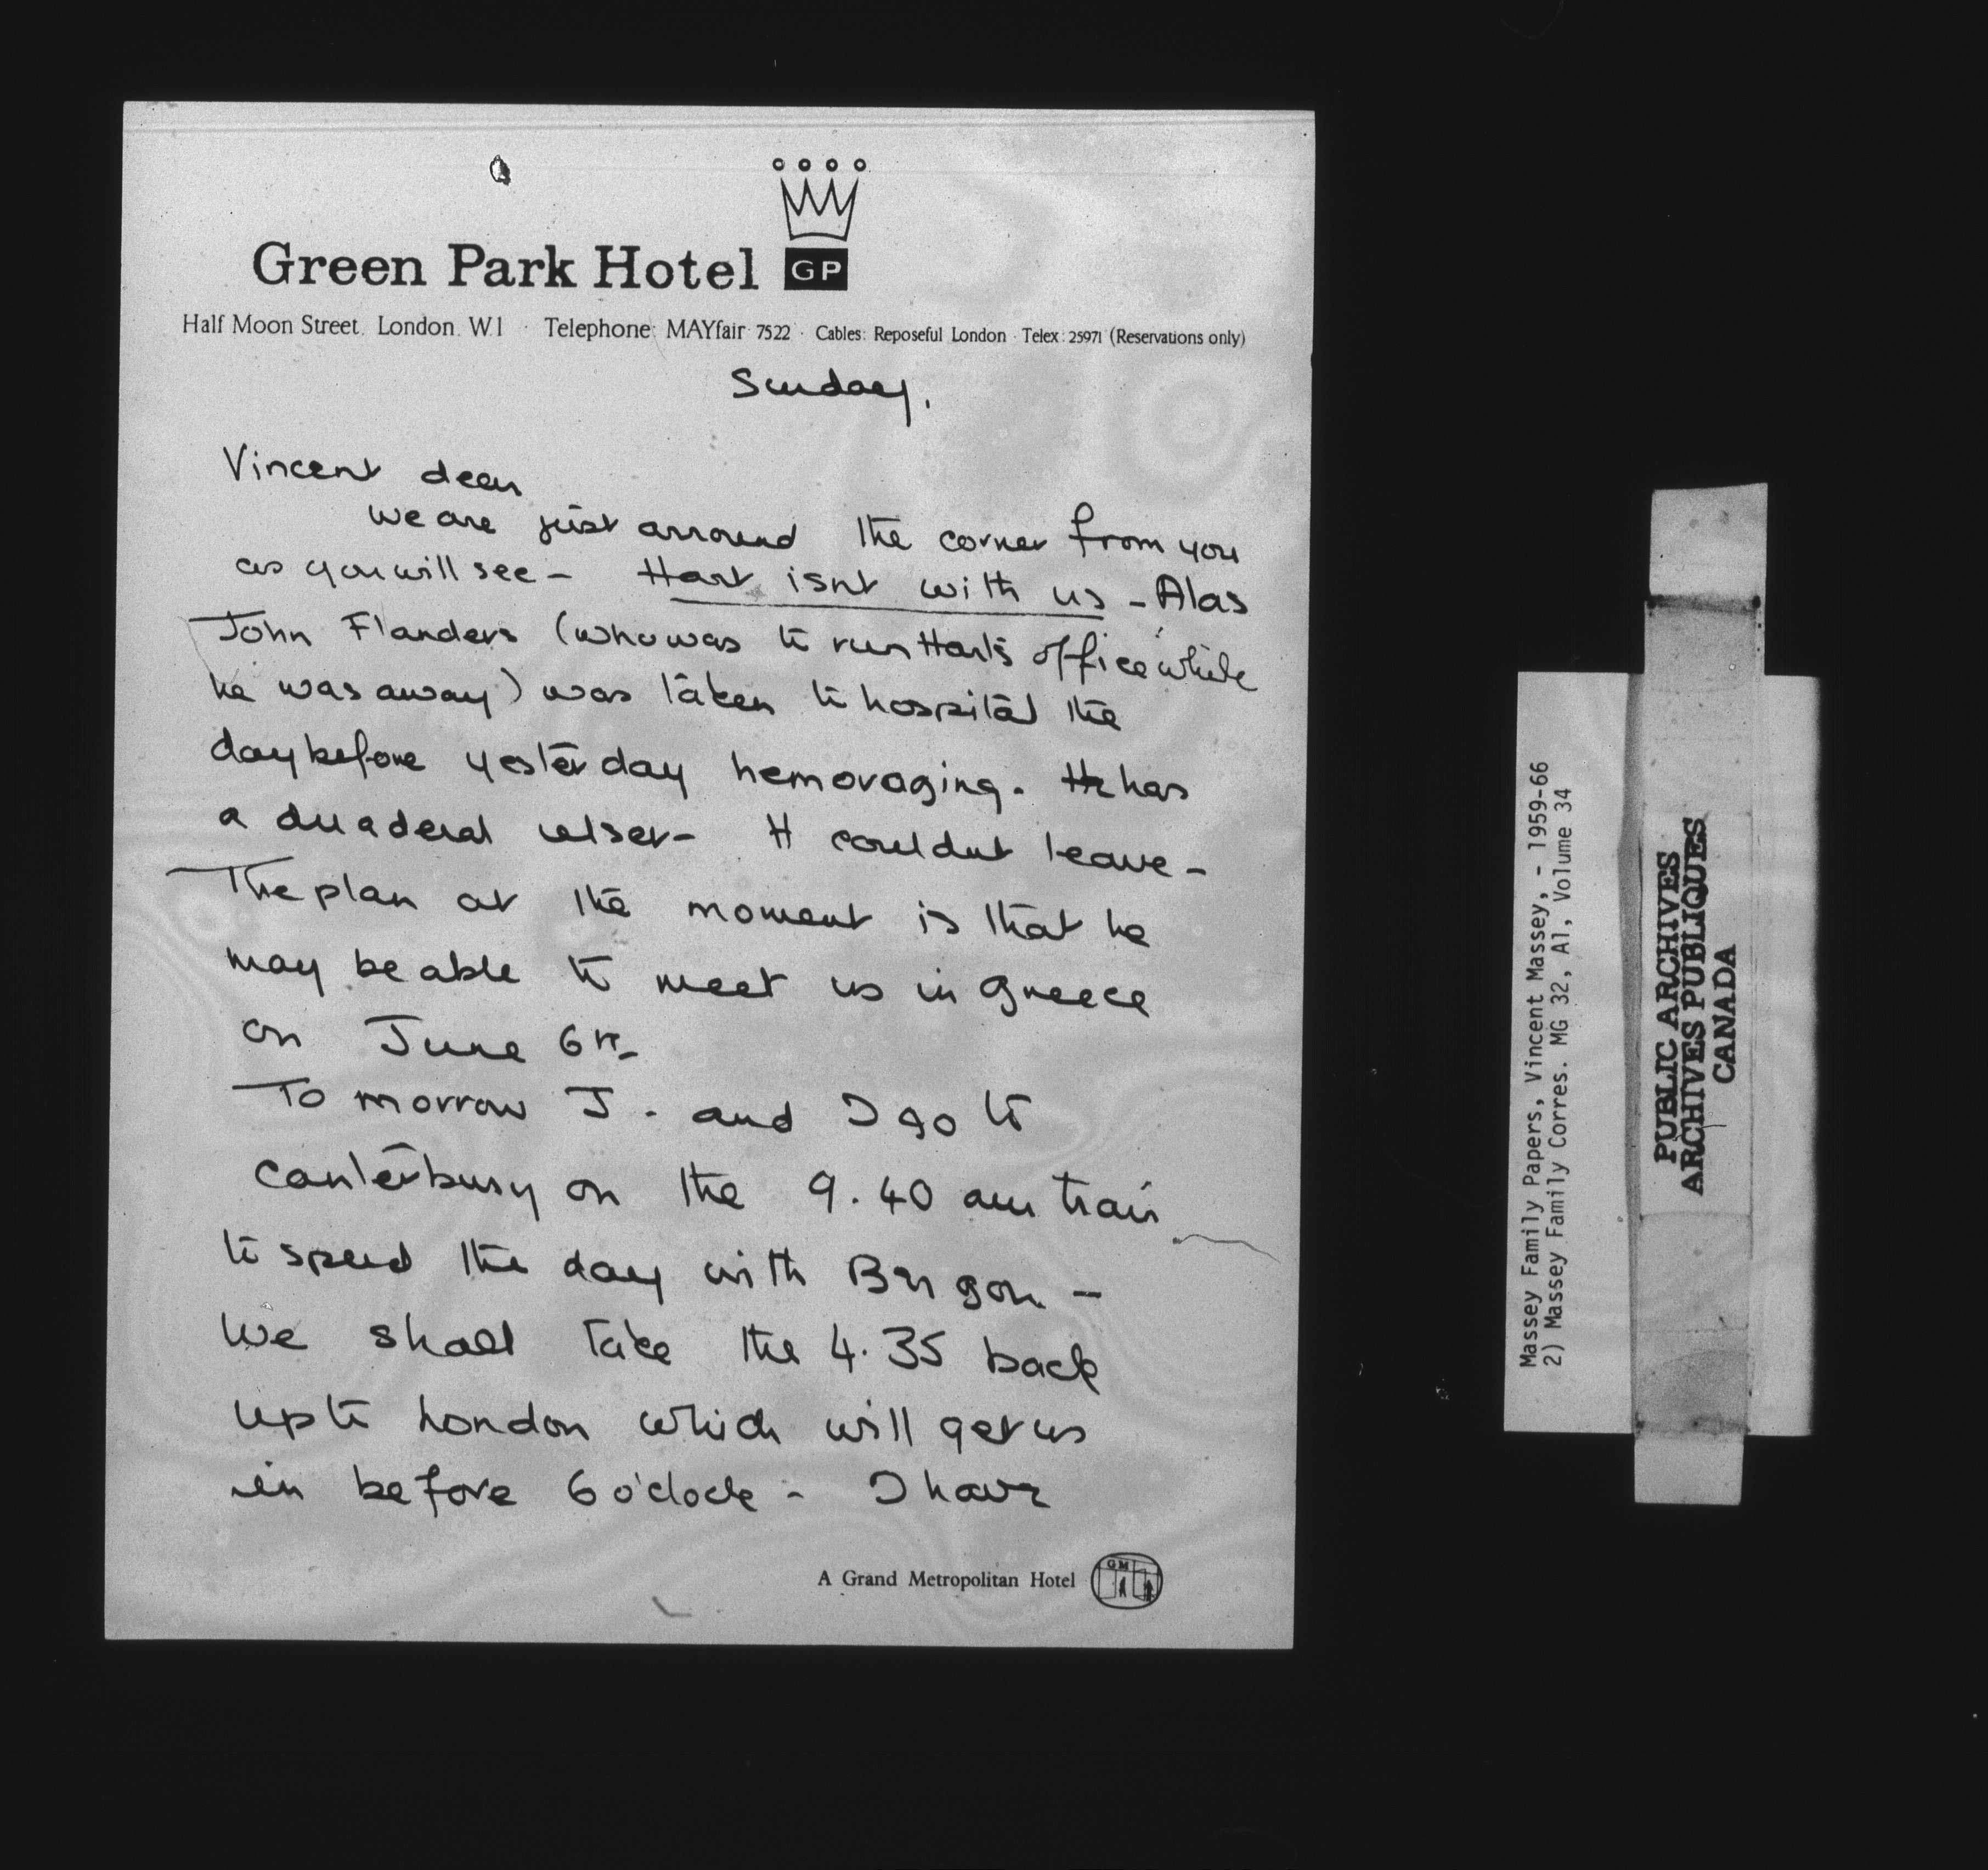 Green Park Hotel GP
Half Moon Street. London. W.1 · Telephone: MAYfair 7522 · Cables: Reposeful London · Telex: 25971 (Reservations only)
Sunday.
Vincent dear
we are just arround the corner from you
as you will see - Hart isnt with us - Alas
John Flanders (who was to run Hart's office while
he was away) was taken to hospital the
day before yesterday hemoraging. He has
a duaderal ulser - H couldnt leave -
The plan at the moment is that he
may be able to meet us in Greece
on June 6th -
To morrow J. and I go to
Canterbury on the 9.40 am train
to spend the day with Burgon -
We shall take the 4.35 back
up to London which will get us
in before 6 o'clock - I have
A Grand Metropolitan Hotel GM
Massey Family Papers, Vincent Massey, - 1959-66
2) Massey Family Corres. MG 32, A1, Volume 34
PUBLIC ARCHIVES
ARCHIVES PUBLIQUES
CANADA